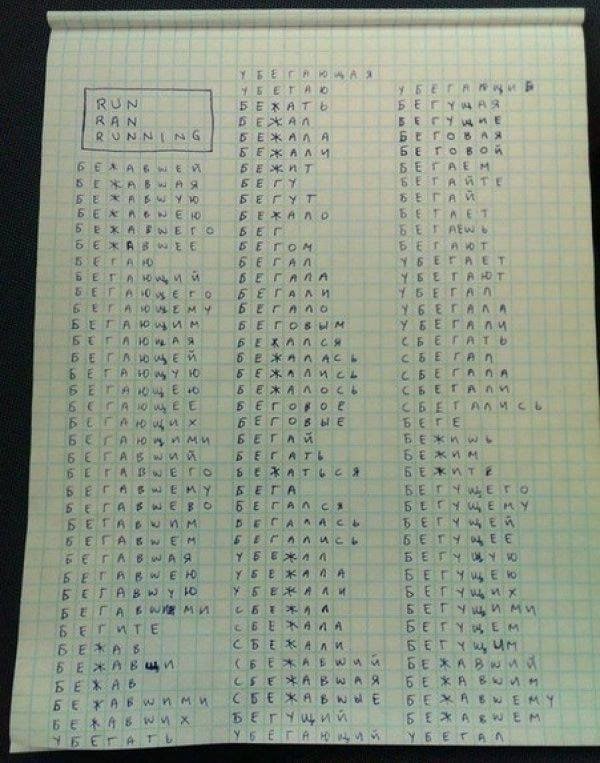 RUN
RAN
RUNNING
БЕЖАВШЕЙ
БЕЖАВШАЯ
БЕЖАВШУЮ
БЕЖАВШЕЮ
БЕЖАВШЕГО
БЕЖАВШЕЕ
БЕГАЮ
БЕГАЮЩИЙ
БЕГАЮЩЕГО
БЕГАЮЩЕМУ
БЕГАЮЩИМ
БЕГАЮЩАЯ
БЕГАЮЩЕЙ
БЕГАЮЩУЮ
БЕГАЮЩЕЮ
БЕГАЮЩЕЕ
БЕГАЮЩИХ
БЕГАЮЩИМИ
БЕГАВШИЙ
БЕГАВШЕГО
БЕГАВШЕМУ
БЕГАВШЕВО
БЕГАВШИМ
БЕГАВШЕМ
БЕГАВШАЯ
БЕГАВШЕЮ
БЕГАВШУЮ
БЕГАВШИМИ
БЕГИТЕ
БЕЖАВ
БЕЖАВЩИ
БЕЖАВ
БЕЖАВШИМИ
БЕЖАВШИХ
УБЕГАТЬ
УБЕГАЮЩАЯ
УБЕГАЮ
БЕЖАТЬ
БЕЖАЛ
БЕЖАЛА
БЕЖАЛИ
БЕЖИТ
БЕГУ
БЕГУТ
БЕЖАЛО
БЕГ
БЕГОМ
БЕГАЛ
БЕГАЛА
БЕГАЛИ
БЕГАЛО
БЕГОВЫМ
БЕЖАЛСЯ
БЕЖАЛАСЬ
БЕЖАЛИСЬ
БЕЖАЛОСЬ
БЕГОВОЕ
БЕГОВЫЕ
БЕГАЙ
БЕГАТЬ
БЕЖАТЬСЯ
БЕГА
БЕГАЛСЯ
БЕГАЛАСЬ
БЕГАЛИСЬ
УБЕЖАЛ
УБЕЖАЛА
УБЕЖАЛИ
СБЕЖАЛ
СБЕЖАЛА
СБЕЖАЛИ
СБЕЖАВШИЙ
СБЕЖАВШАЯ
СБЕЖАВШЫЕ
БЕГУЩИЙ
УБЕГАЮЩИЙ
БЕГУЩАЯ
БЕГУЩИЕ
БЕГОВАЯ
БЕГОВОЙ
БЕГАЕМ
БЕГАЙТЕ
БЕГАЙ
БЕГАЕТ
БЕГАЕШЬ
БЕГАЮТ
УБЕГАЕТ
УБЕГАЮТ
УБЕГАЛ
УБЕГАЛА
УБЕГАЛИ
СБЕГАТЬ
СБЕГАЛ
СБЕГАЛА
СБЕГАЛИ
СБЕГАЛИСЬ
БЕГЕ
БЕЖИШЬ
БЕЖИМ
БЕЖИТЕ
БЕГУЩЕГО
БЕГУЩЕМУ
БЕГУЩЕЙ
БЕГУЩЕЕ
БЕГУЩУЮ
БЕГУЩЕЮ
БЕГУЩИХ
БЕГУЩИМИ
БЕГУЩЕМ
БЕГУЩЫМ
БЕЖАВШИЙ
БЕЖАВШИМ
БЕЖАВШЕМУ
БЕЖАВШЕМ
УБЕГАЛ